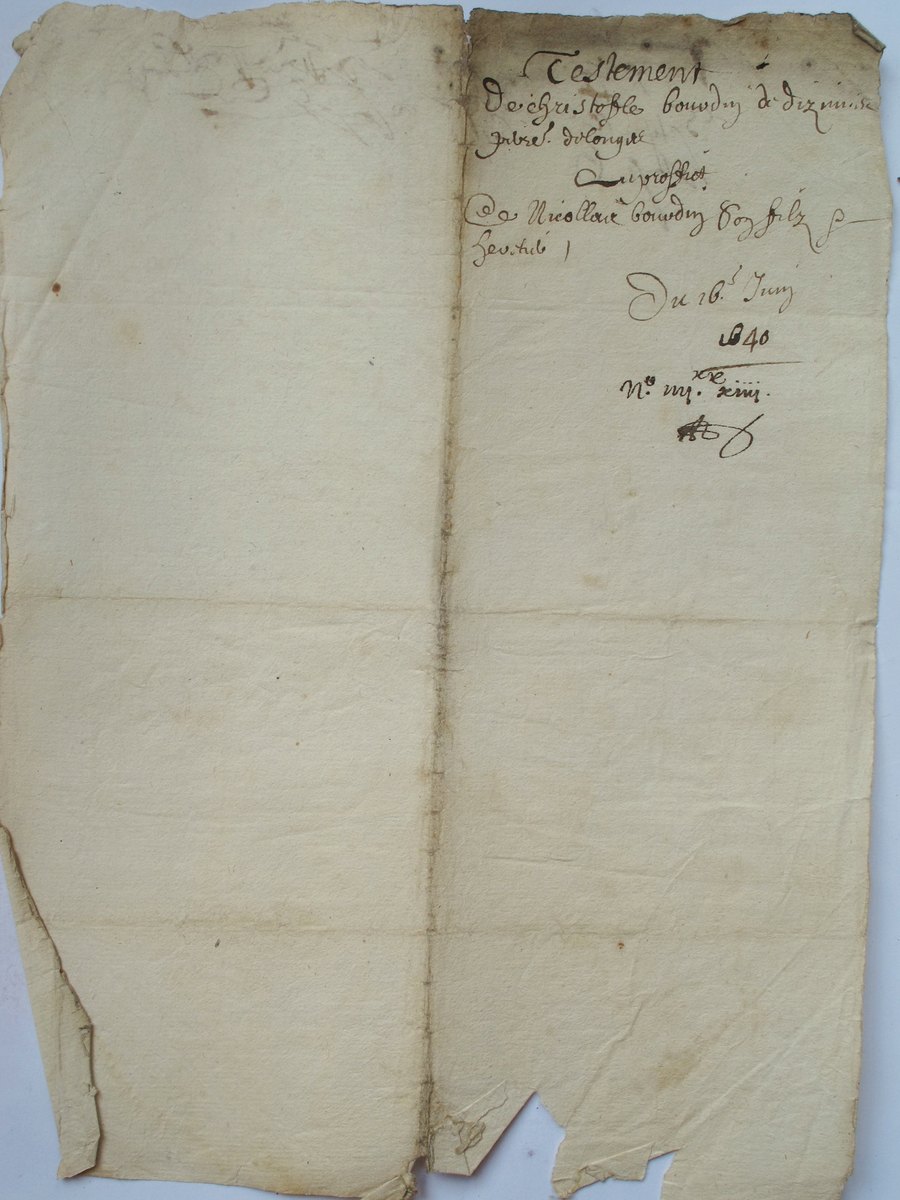 Testement
de christofle bouudin de
de
Au proffict
de Nicollas bouudin son filz
Du 16.e Juin
1640
No. iiii.xx xiiii.